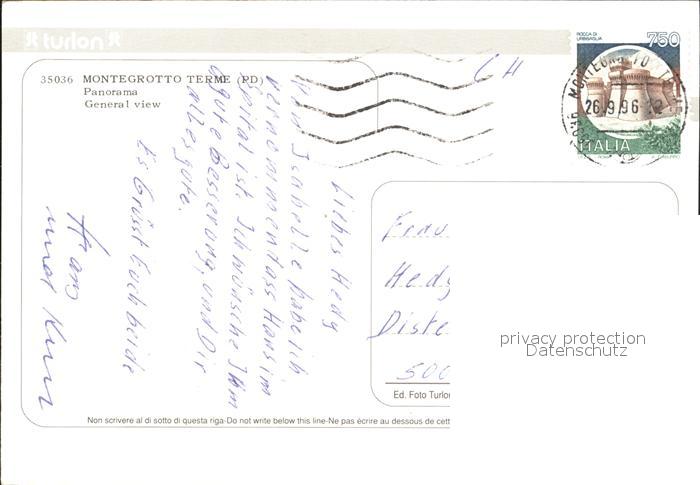 turlon
35036 MONTEGROTTO TERME (PD)
Panorama
General view
ROCCA DI
URBISAGLIA
750
MONTEGROTTO TERME
26.9.96
ITALIA
CH
Libes Hedy
von Isabelle habe ich
vernommen dass Hans im
Spital ist. Ich wünsche Ihm
gute Besserung, und Dir
alles gute.
Es Grüsst Euch beide
Frau
Hedy
Diste
500
Ed. Foto Turlon
privacy protection
Datenschutz
Non scrivere al di sotto di questa riga-Do not write below this line-Ne pas écrire au dessous de cett